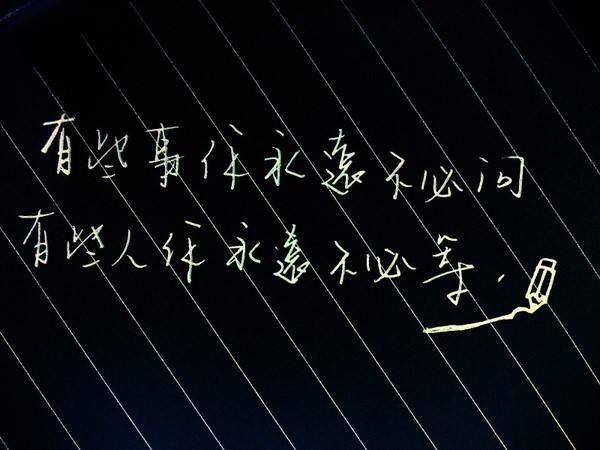 有些事你永遠不必问
有些人你永遠不必等.